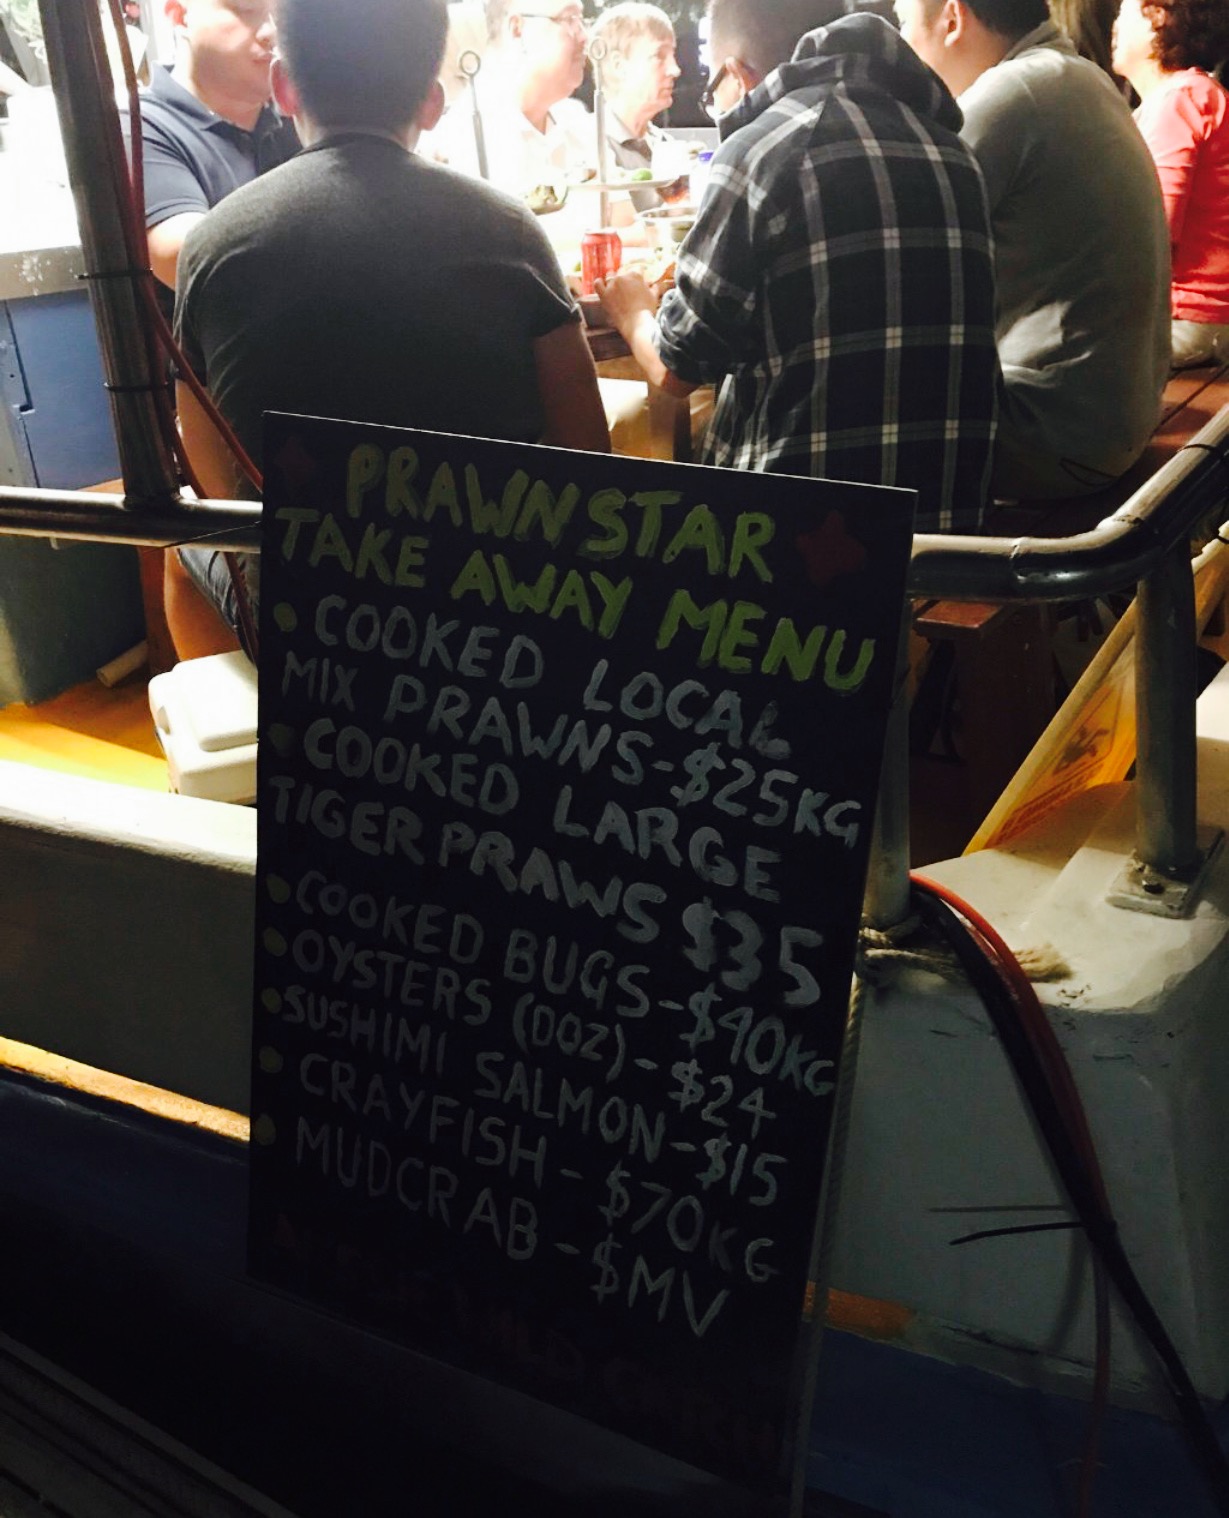 PRAWNSTAR
TAKE AWAY MENU
• COOKED LOCAL
MIX PRAWNS-$25KG
• COOKED LARGE
TIGER PRAWS $35
• COOKED BUGS-$40KG
• OYSTERS (DOZ)-$24
• SUSHIMI SALMON-$15
• CRAYFISH-$70KG
• MUDCRAB-$MV